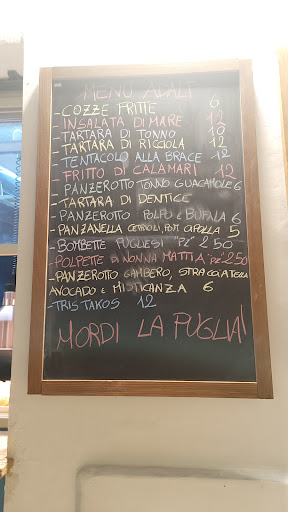 MENÙ ADALT
- COZZE FRITTE 6
- INSALATA DI MARE 12
- TARTARA DI TONNO 10
- TARTARA DI RICCIOLA 12
- TENTACOLO ALLA BRACE 12
- FRITTO DI CALAMARI 12
- PANZEROTTO TONNO GUACAMOLE 6
- TARTARA DI DENTICE
- PANZEROTTO POLPO e BUFALA 6
- PANZANELLA CETRIOLI, POM CIPOLLA 5
- BOMBETTE PUGLIESI "PZ" 2.50
- POLPETTE DI NONNA MATTIA "PZ" 2.50
- PANZEROTTO GAMBERO, STRACCIATELLA
AVOCADO e MISTICANZA 6
- TRIS TAKOS 12
MORDI LA PUGLIA!